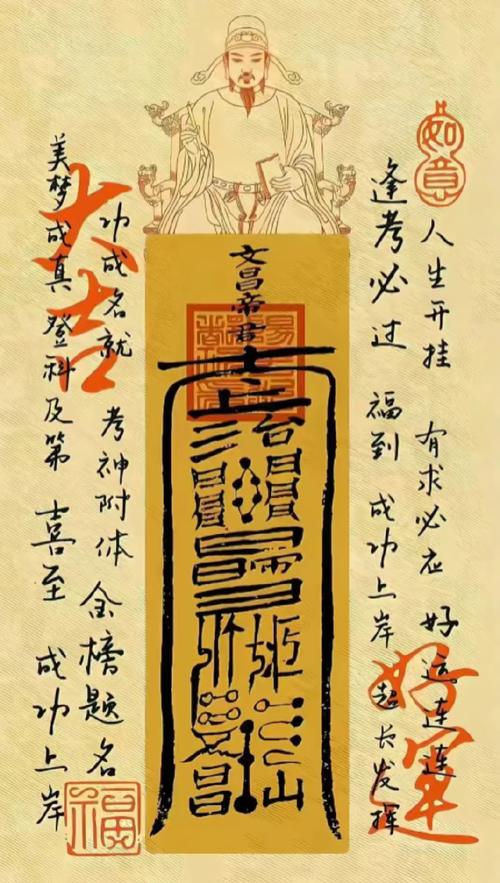 如意
人生开挂 有求必应 好运连连
逢考必过 福到 成功上岸 超长发挥
好運
文昌帝君
功成名就 考神附体 金榜题名
美梦成真 登科及第 喜至 成功上岸
大吉
福